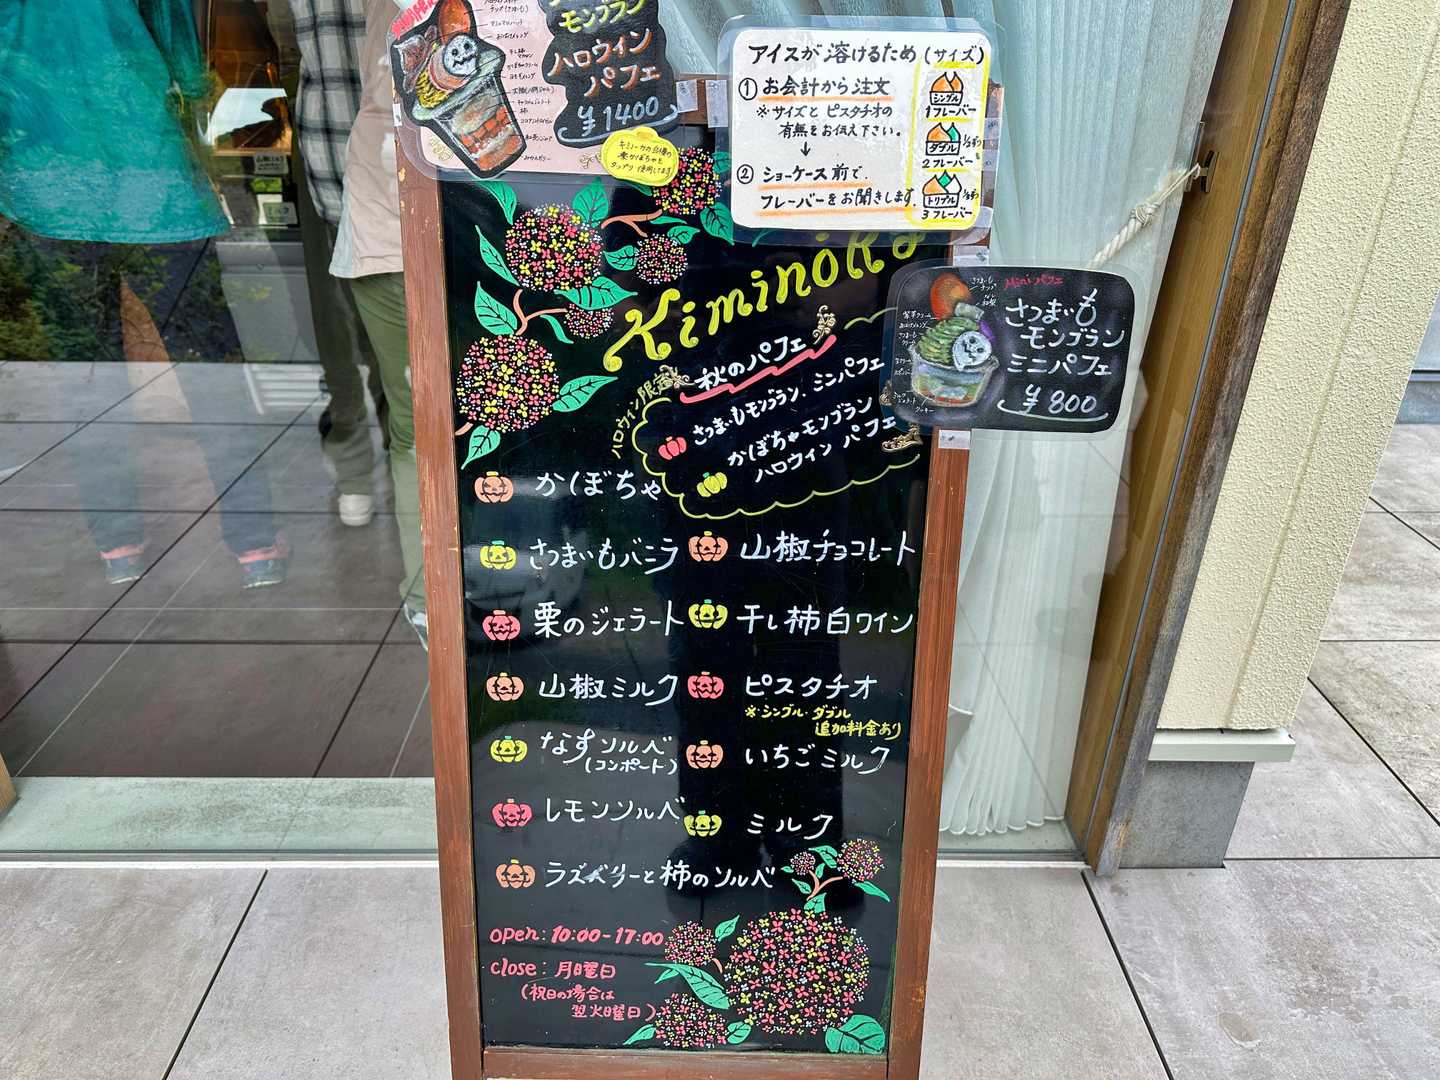 モンブラン
ハロウィン
パフェ
¥1400
アイスが溶けるため(サイズ)
① お会計から注文
※サイズとピスタチオの
有無をお伝え下さい。
↓
② ショーケース前で、
フレーバーをお聞きします。
シングル
1フレーバー
ダブル
2フレーバー
トリプル
3フレーバー
Kiminoka
Mini パフェ
さつまいも
モンブラン
ミニパフェ
¥800
秋のパフェ
ハロウィン限定
さつまいもモンブラン、ミンパフェ
かぼちゃモンブラン
ハロウィン パフェ
かぼちゃ
さつまいもバニラ
栗のジェラート
山椒ミルク
なすソルベ
(コンポート)
レモンソルベ
ラズベリーと柿のソルベ
山椒チョコレート
干し柿白ワイン
ピスタチオ
※シングル・ダブル
追加料金あり
いちごミルク
ミルク
open: 10:00-17:00
close: 月曜日
(祝日の場合は
翌火曜日)